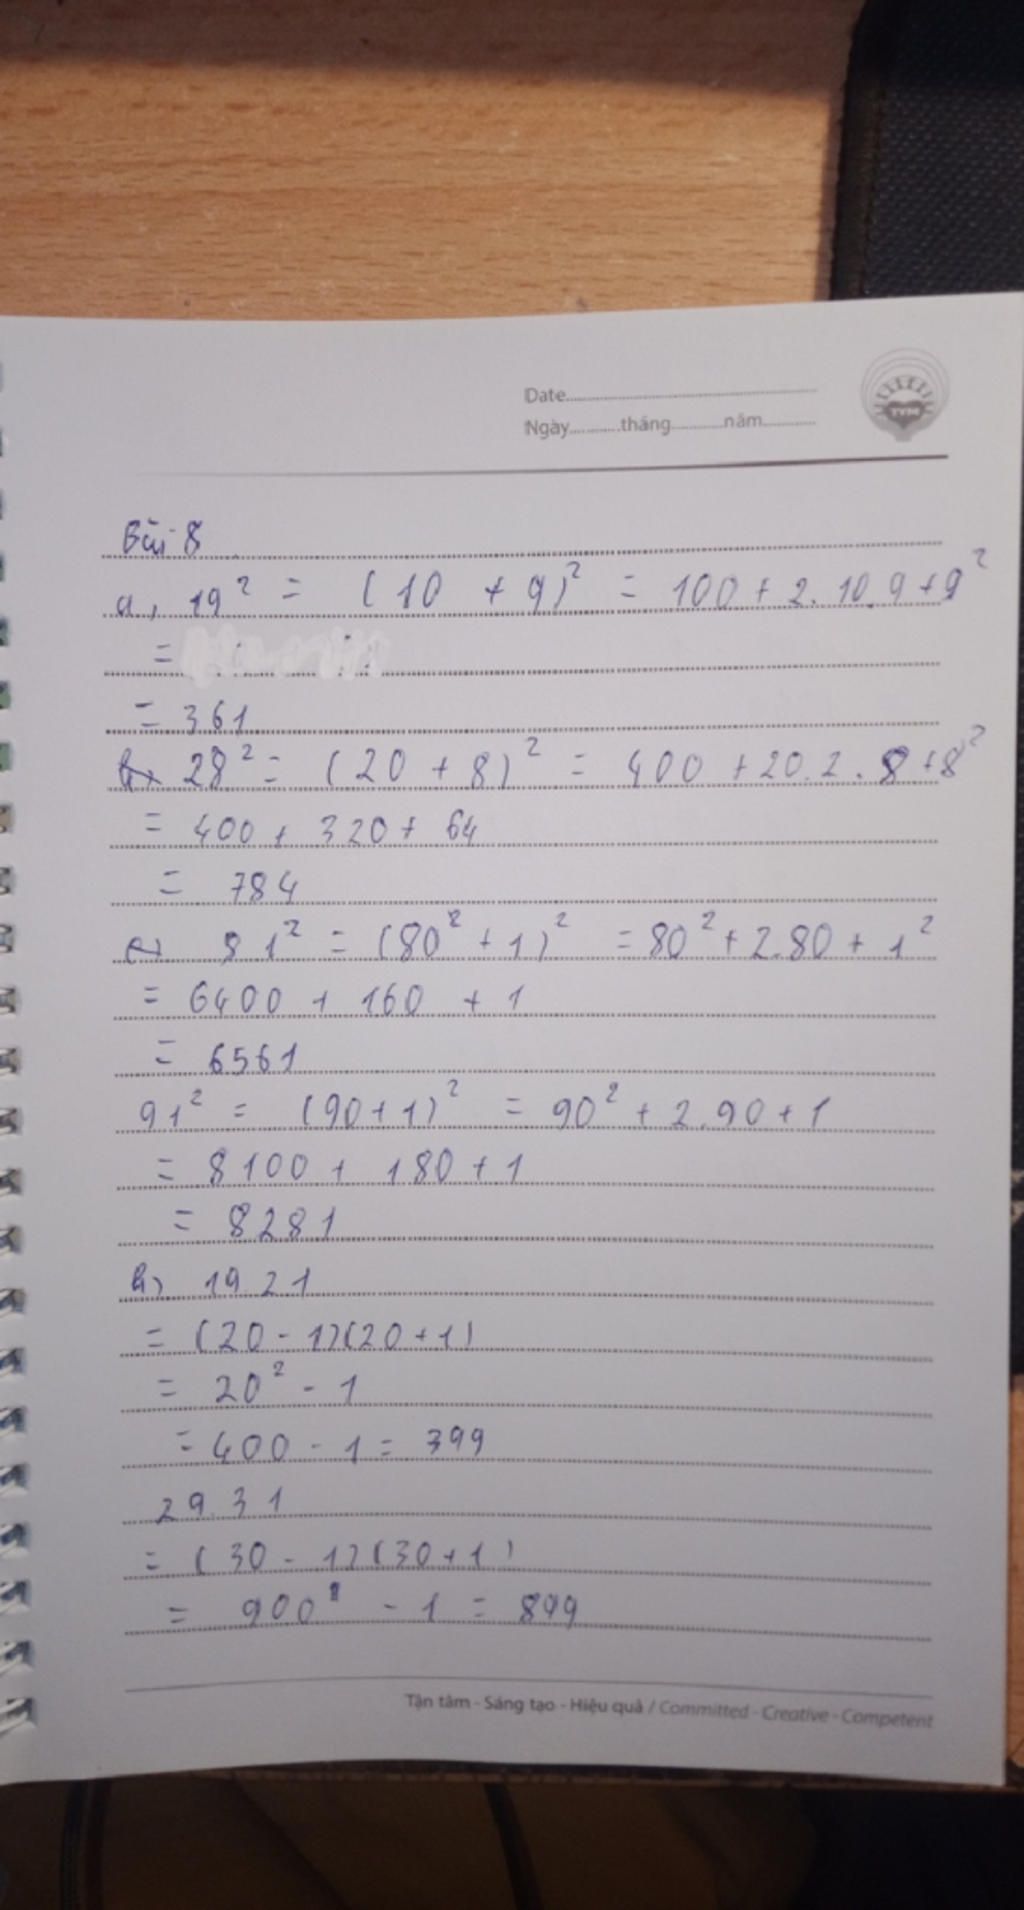 Date
Ngày tháng năm
TYM
Bài 8
a, 19² = (10 + 9)² = 100 + 2.10.9 + 9²
=
= 361
b, 28² = (20 + 8)² = 400 + 20.2.8 + 8²
= 400 + 320 + 64
= 784
81² = (80² + 1)² = 80² + 2.80 + 1²
= 6400 + 160 + 1
= 6561
91² = (90 + 1)² = 90² + 2.90 + 1
= 8100 + 180 + 1
= 8281
b, 19.21
= (20 - 1)(20 + 1)
= 20² - 1
= 400 - 1 = 399
29.31
= (30 - 1)(30 + 1)
= 900 - 1 = 899
Tận tâm - Sáng tạo - Hiệu quả / Committed - Creative - Competent